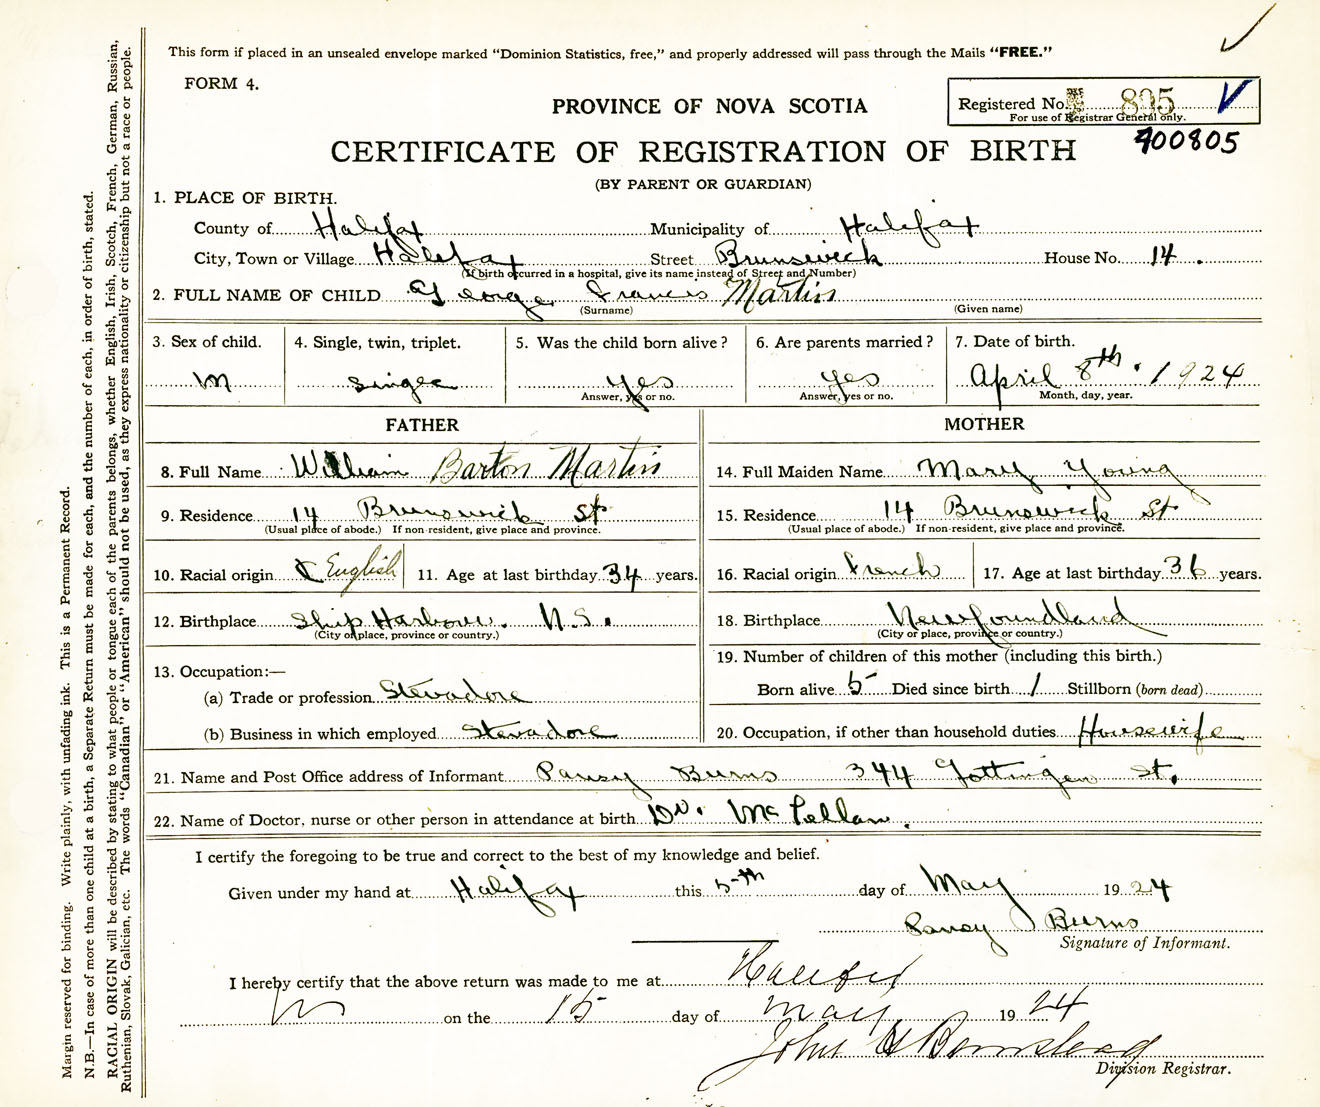 This form if placed in an unsealed envelope marked "Dominion Statistics, free," and properly addressed will pass through the Mails "FREE."
FORM 4.
PROVINCE OF NOVA SCOTIA
Registered No. 805
For use of Registrar General only.
CERTIFICATE OF REGISTRATION OF BIRTH
700805
(BY PARENT OR GUARDIAN)
1. PLACE OF BIRTH.
County of Halifax Municipality of Halifax
City, Town or Village Halifax Street Brunswick House No. 14.
(If birth occurred in a hospital, give its name instead of Street and Number)
2. FULL NAME OF CHILD George Francis Martin
(Surname) (Given name)
3. Sex of child. 4. Single, twin, triplet. 5. Was the child born alive? 6. Are parents married? 7. Date of birth.
M Single Yes Yes April 8th. 1924
Answer, yes or no. Answer, yes or no. Month, day, year.
FATHER MOTHER
8. Full Name William Barton Martin 14. Full Maiden Name Mary Young
9. Residence 14 Brunswick St 15. Residence 14 Brunswick St
(Usual place of abode.) If non-resident, give place and province. (Usual place of abode.) If non-resident, give place and province.
10. Racial origin English 11. Age at last birthday 34 years. 16. Racial origin French 17. Age at last birthday 36 years.
12. Birthplace Ship Harbour. N.S. 18. Birthplace Newfoundland
(City or place, province or country.) (City or place, province or country.)
13. Occupation:— 19. Number of children of this mother (including this birth.)
(a) Trade or profession Stevadore Born alive 5 Died since birth 1 Stillborn (born dead)
(b) Business in which employed Stevadore 20. Occupation, if other than household duties Housewife
21. Name and Post Office address of Informant Pansy Burns 344 Gottingen St.
22. Name of Doctor, nurse or other person in attendance at birth Dr. McLellan.
I certify the foregoing to be true and correct to the best of my knowledge and belief.
Given under my hand at Halifax this 5th day of May 1924
Pansy Burns
Signature of Informant.
I hereby certify that the above return was made to me at Halifax
on the 15 day of May 1924
John
Division Registrar.
Margin reserved for binding. Write plainly, with unfading ink. This is a Permanent Record.
N.B.—In case of more than one child at a birth, a Separate Return must be made for each, and the number of each, in order of birth, stated.
RACIAL ORIGIN will be described by stating to what people or tongue each of the parents belongs, whether English, Irish, Scotch, French, German, Russian,
Ruthenian, Slovak, Galician, etc. The words "Canadian" or "American" should not be used, as they express nationality or citizenship but not a race or people.